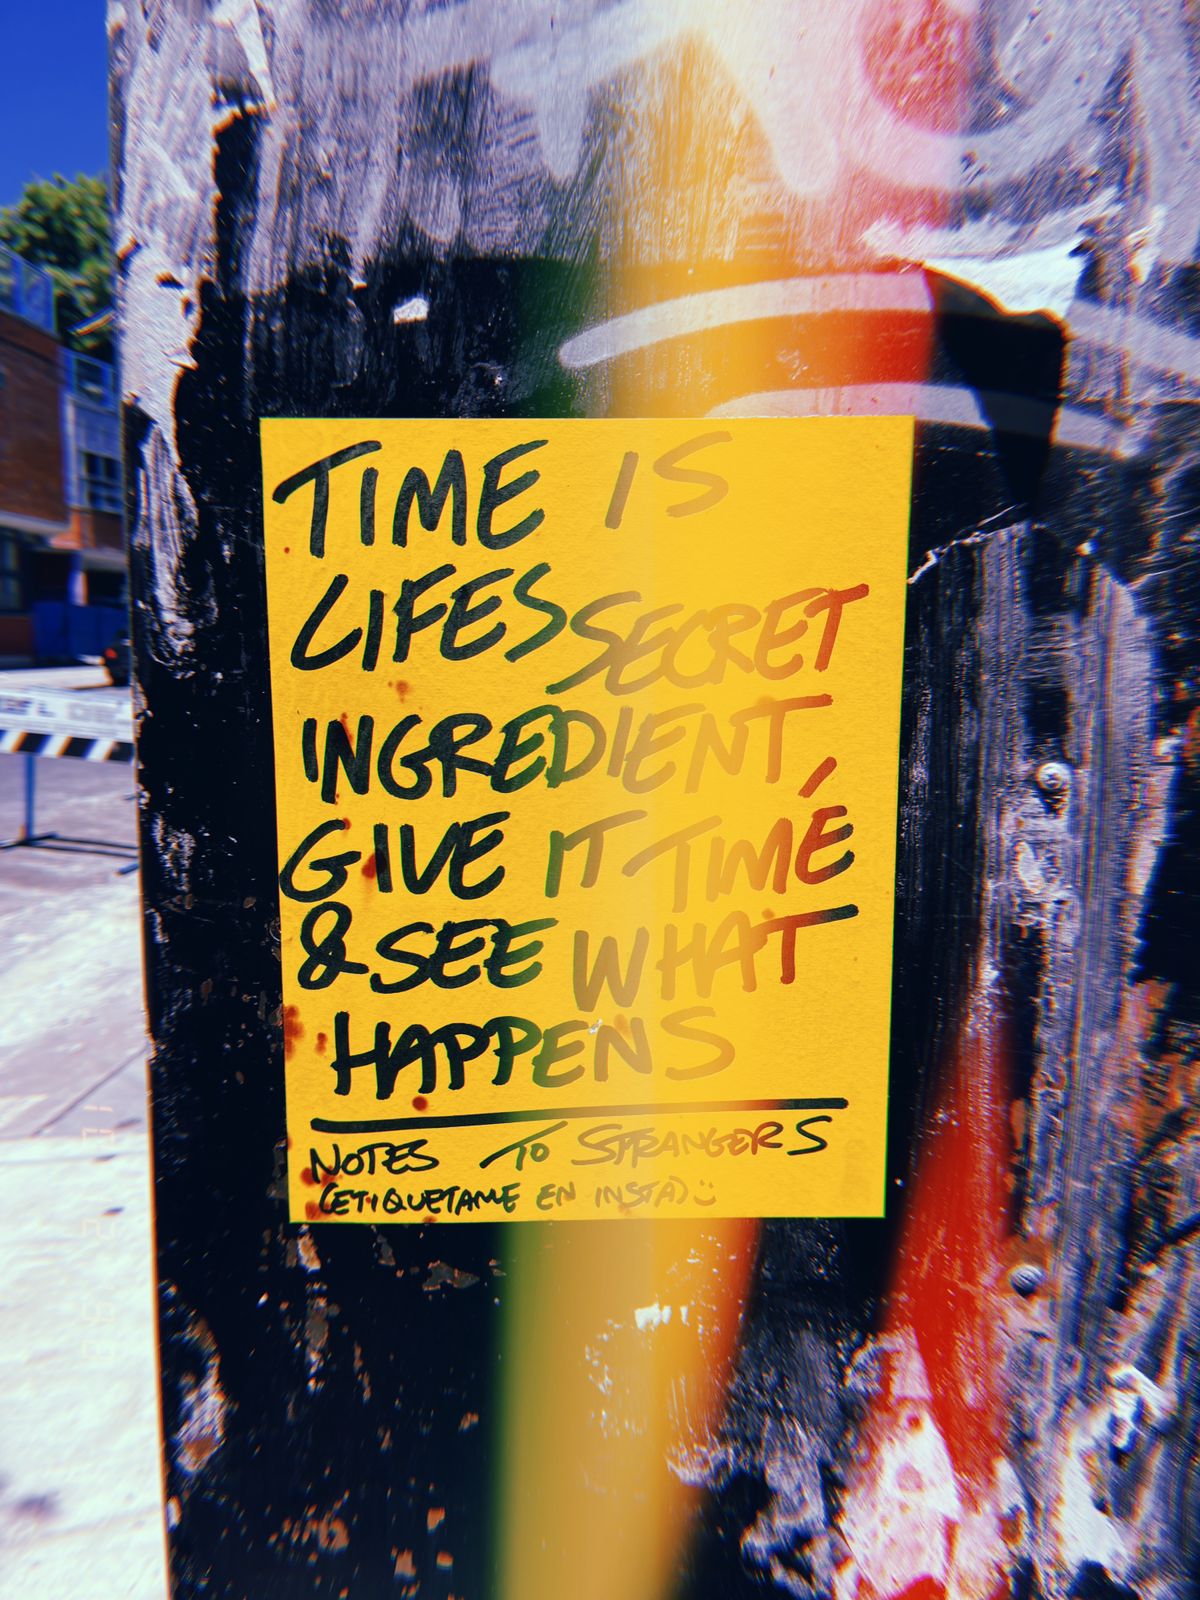 TIME IS
LIFES SECRET
INGREDIENT.
GIVE IT TIMÉ
& SEE WHAT
HAPPENS
NOTES TO STRANGERS
(ETIQUETAME EN INSTA) :)